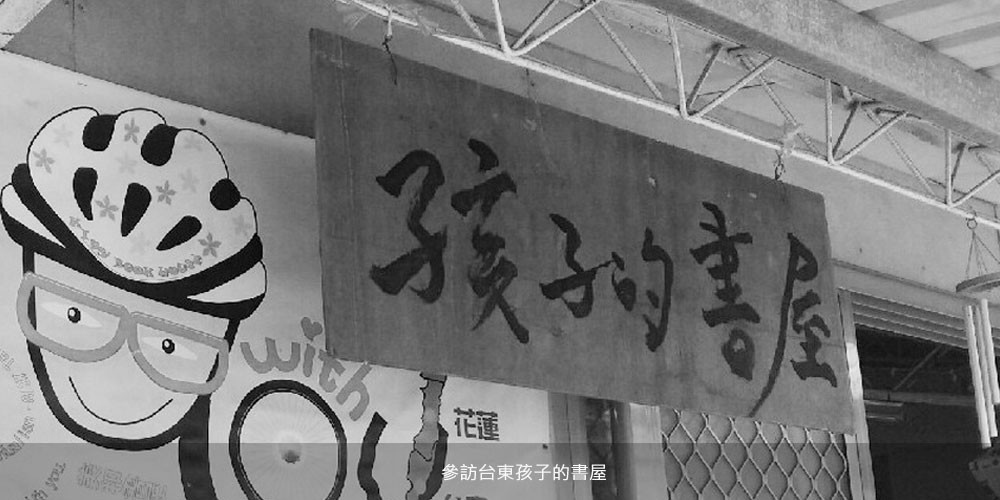 孩子的書屋
with
花蓮
參訪台東孩子的書屋